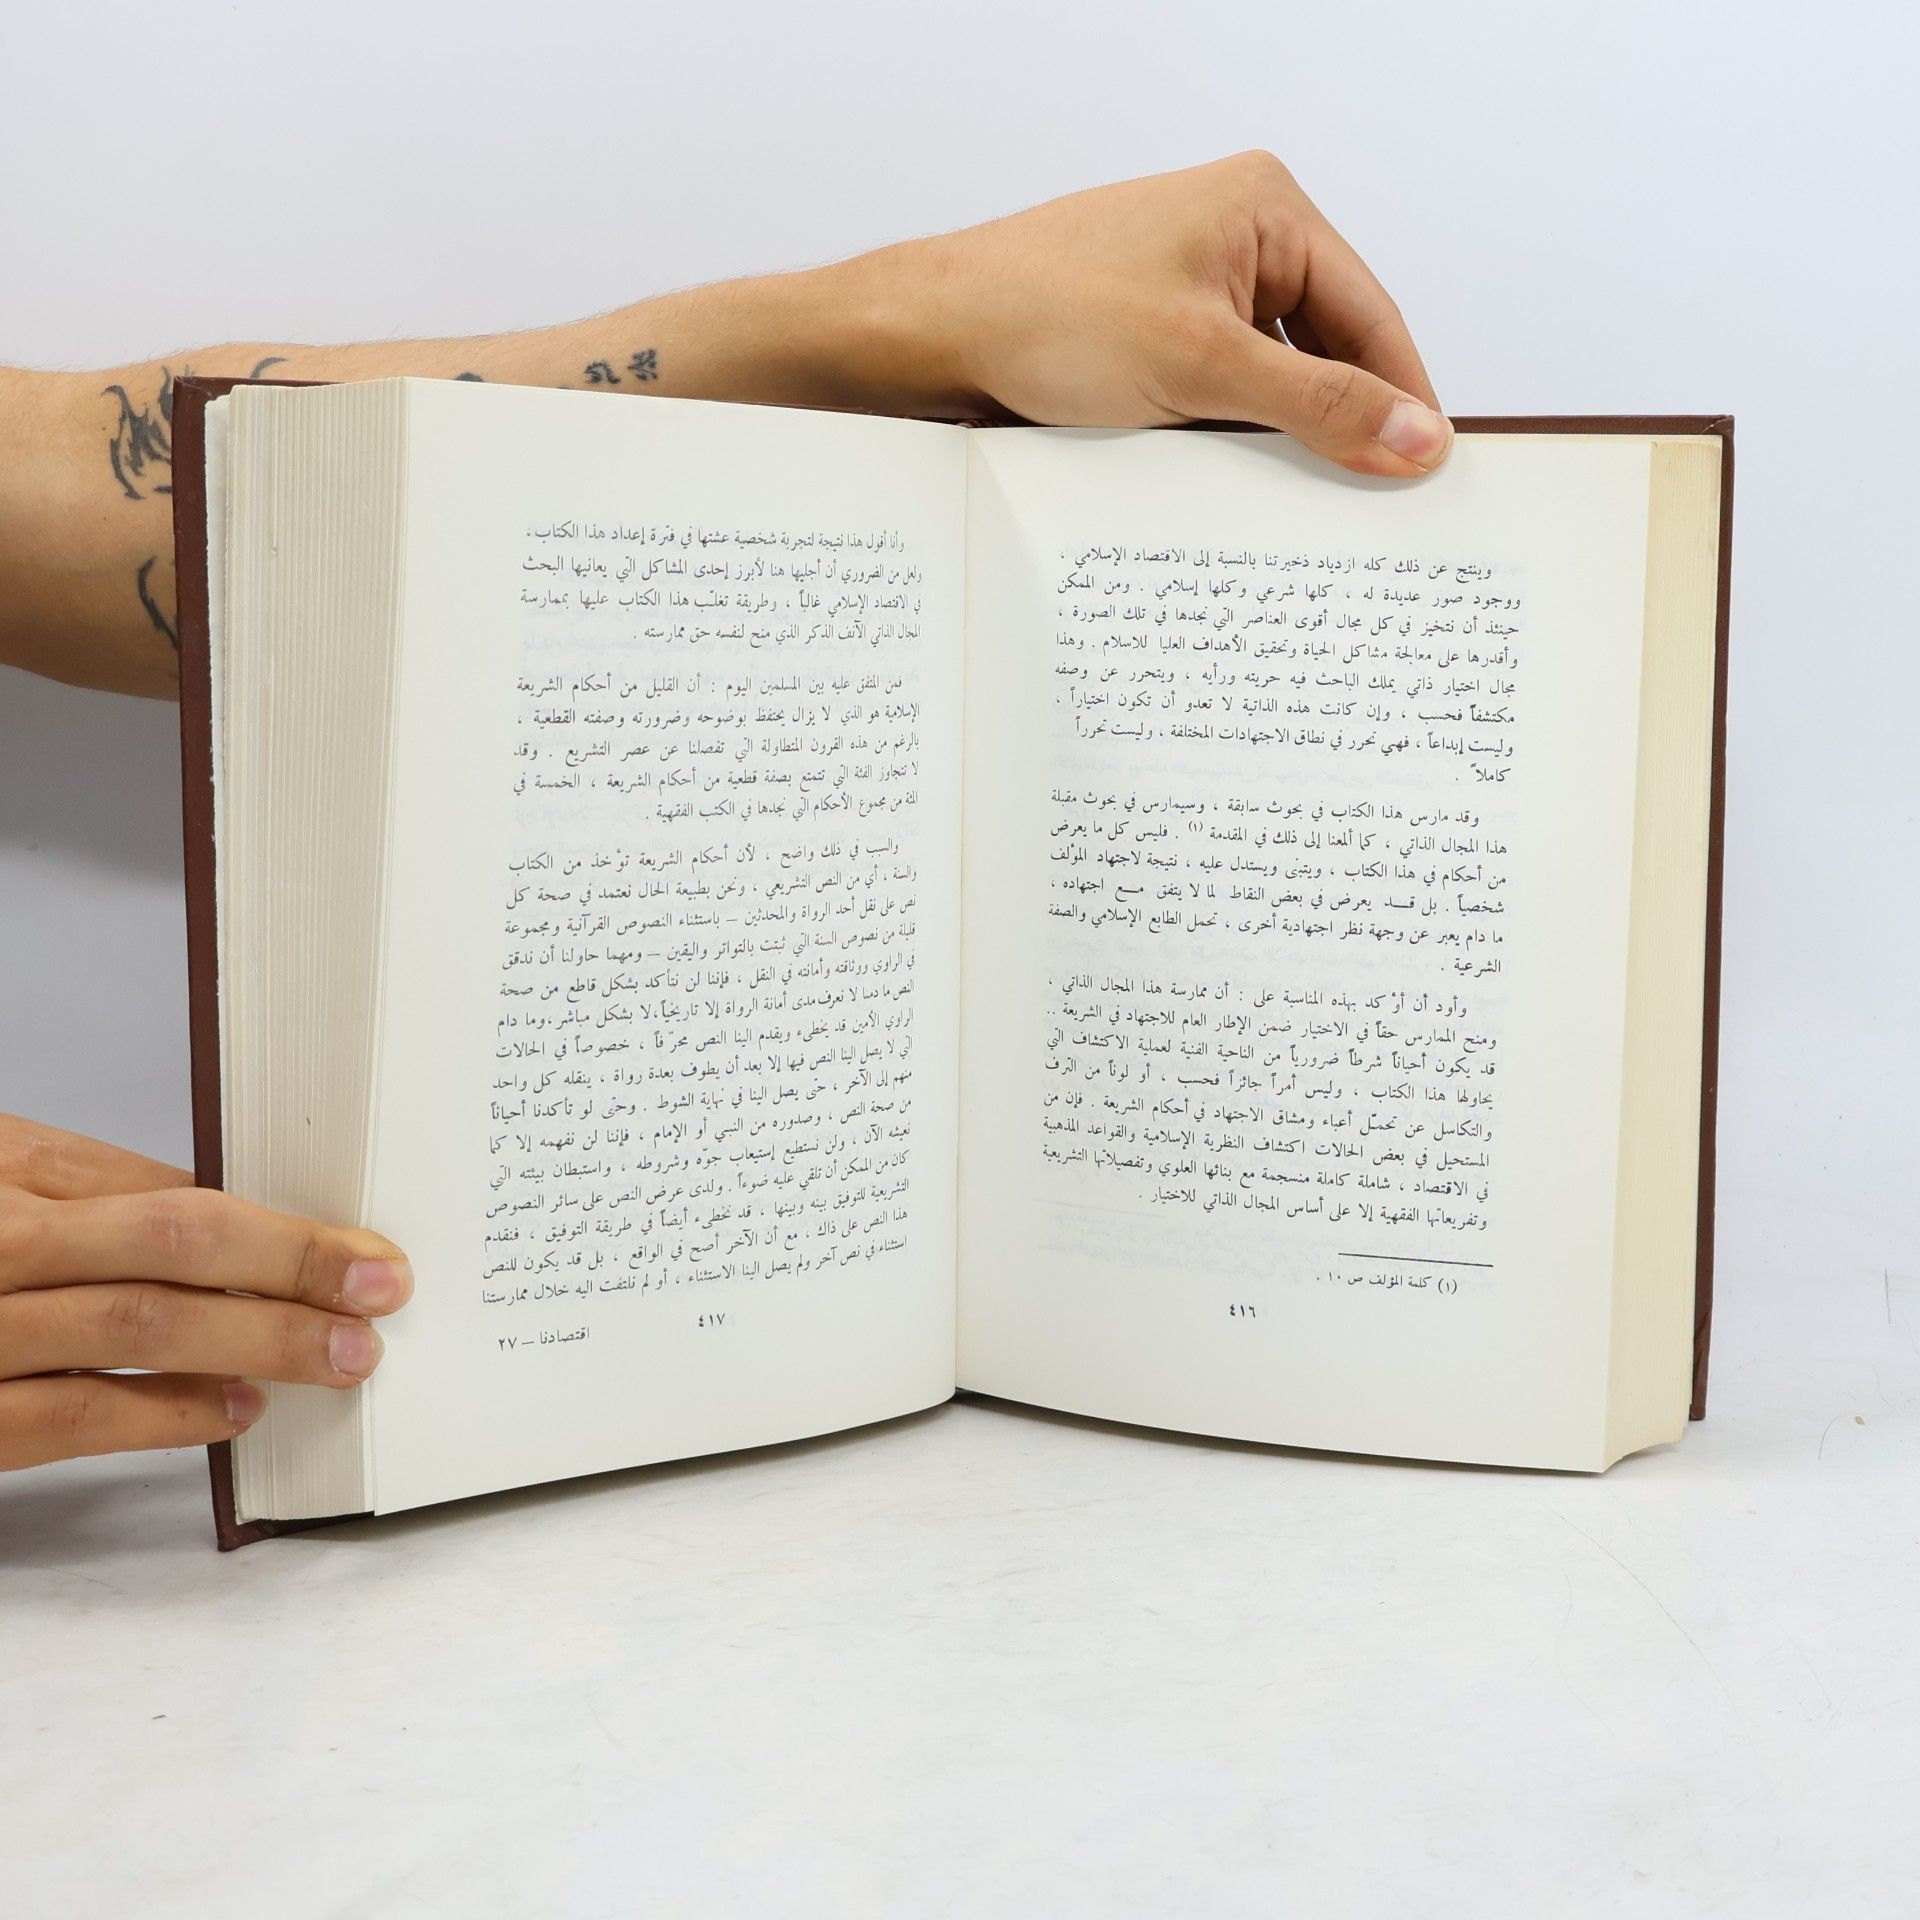 وينتج عن ذلك كله ازدياد ذخيرتنا بالنسبة إلى الاقتصاد الإسلامي ،
ووجود صور عديدة له ، كلها شرعي وكلها إسلامي . ومن الممكن
حينئذ أن نتخيز في كل مجال أقوى العناصر التي نجدها في تلك الصورة ،
وأقدرها على معالجة مشاكل الحياة وتحقيق الأهداف العليا للاسلام . وهذا
مجال اختيار ذاتي يملك الباحث فيه حريته ورأيه ، ويتحرر عن وصفه
مكتشفاً فحسب ، وإن كانت هذه الذاتية لا تعدو أن تكون اختياراً ،
وليست إبداعاً ، فهي تحرر في نطاق الاجتهادات المختلفة ، وليست تحرراً
كاملاً .
وقد مارس هذا الكتاب في بحوث سابقة ، وسيمارس في بحوث مقبلة
هذا المجال الذاتي ، كما ألمعنا إلى ذلك في المقدمة (١) . فليس كل ما يعرض
من أحكام في هذا الكتاب ، ويتبنى ويستدل عليه ، نتيجة لاجتهاد المؤلف
شخصياً . بل قد يعرض في بعض النقاط لما لا يتفق مع اجتهاده ،
ما دام يعبر عن وجهة نظر اجتهادية أخرى ، تحمل الطابع الإسلامي والصفة
الشرعية .
وأود أن أؤكد بهذه المناسبة على : أن ممارسة هذا المجال الذاتي ،
ومنح الممارس حقاً في الاختيار ضمن الإطار العام للاجتهاد في الشريعة ..
قد يكون أحياناً شرطاً ضرورياً من الناحية الفنية لعملية الاكتشاف التي
يحاولها هذا الكتاب ، وليس أمراً جائزاً فحسب ، أو لوناً من الترف
والتكاسل عن تحمّل أعباء ومشاق الاجتهاد في أحكام الشريعة . فإن من
المستحيل في بعض الحالات اكتشاف النظرية الإسلامية والقواعد المذهبية
في الاقتصاد ، شاملة كاملة منسجمة مع بنائها العلوي وتفصيلاتها التشريعية
وتفريعاتها الفقهية إلا على أساس المجال الذاتي للاختيار .
(١) كلمة المؤلف ص ١٠ .
٤١٦
وأنا أقول هذا نتيجة لتجربة شخصية عشتها في فترة إعداد هذا الكتاب .
ولعل من الضروري أن أجليها هنا لأبرز إحدى المشاكل التي يعانيها البحث
في الاقتصاد الإسلامي غالباً ، وطريقة تغلّب هذا الكتاب عليها بممارسة
المجال الذاتي الآنف الذكر الذي منح لنفسه حق ممارسته .
فمن المتفق عليه بين المسلمين اليوم : أن القليل من أحكام الشريعة
الإسلامية هو الذي لا يزال يحتفظ بوضوحه وضرورته وصفته القطعية ،
بالرغم من هذه القرون المتطاولة التي تفصلنا عن عصر التشريع . وقد
لا تتجاوز الفئة التي تتمتع بصفة قطعية من أحكام الشريعة ، الخمسة في
المئة من مجموع الأحكام التي نجدها في الكتب الفقهية .
والسبب في ذلك واضح ، لأن أحكام الشريعة تؤخذ من الكتاب
والسنة ، أي من النص التشريعي ، ونحن بطبيعة الحال نعتمد في صحة كل
نص على نقل أحد الرواة والمحدثين – باستثناء النصوص القرآنية ومجموعة
قليلة من نصوص السنة التي ثبتت بالتواتر واليقين – ومهما حاولنا أن ندقق
في الراوي ووثاقته وأمانته في النقل ، فإننا لن نتأكد بشكل قاطع من صحة
النص ما دمنا لا نعرف مدى أمانة الرواة إلا تاريخياً، لا بشكل مباشر ، وما دام
الراوي الأمين قد يخطىء ويقدم الينا النص محرّفاً ، خصوصاً في الحالات
التي لا يصل الينا النص فيها إلا بعد أن يطوف بعدة رواة ، ينقله كل واحد
منهم إلى الآخر ، حتى يصل الينا في نهاية الشوط . وحتى لو تأكدنا أحياناً
من صحة النص ، وصدوره من النبي أو الإمام ، فإننا لن نفهمه إلا كما
نعيشه الآن ، ولن نستطيع إستيعاب جوّه وشروطه ، واستبطان بيئته التي
كان من الممكن أن تلقي عليه ضوءاً . ولدى عرض النص على سائر النصوص
التشريعية للتوفيق بينه وبينها ، قد نخطىء أيضاً في طريقة التوفيق ، فنقدم
هذا النص على ذاك ، مع أن الآخر أصح في الواقع ، بل قد يكون للنص
استثناء في نص آخر ولم يصل الينا الاستثناء ، أو لم نلتفت اليه خلال ممارستنا
٤١٧
اقتصادنا – ٢٧